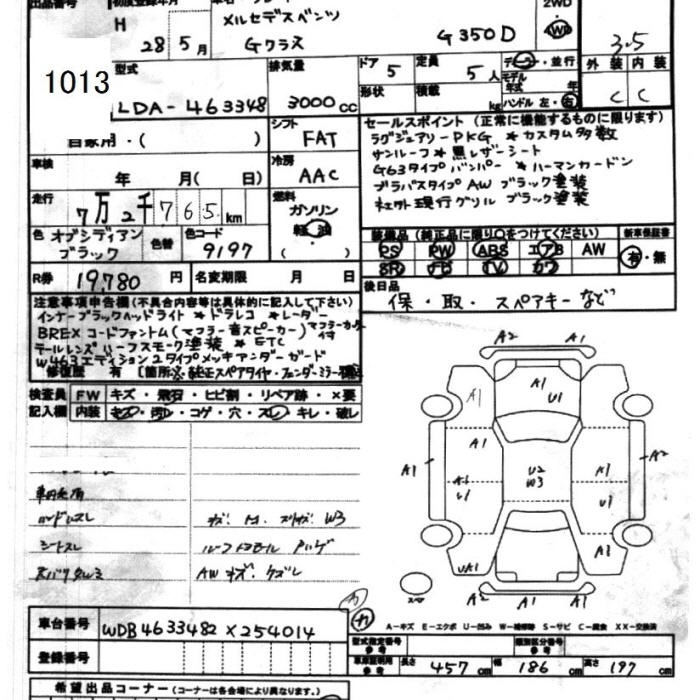 出品番号 初度登録年月
H 28年 5月
メルセデスベンツ
Gクラス
G350D
2WD
4WD
3.5
外装 内装
C C
1013
型式
LDA-463348
排気量
3000cc
ドア 5
定員 5人
形状
積載 kg
ディーラー・並行
モデル年式 年
ハンドル 左・右
自家用・( )
シフト
FAT
車検
年 月( 日)
冷房
AAC
走行
7万2千765km
燃料
ガソリン
軽油
( )
色
オブシディアン
ブラック
色替
色コード
9197
R券 19,780円
名変期限 月 日
セールスポイント (正常に機能するものに限ります)
ラグジュアリーPKG * カスタム多数
サンルーフ * 黒レザーシート
G63タイプバンパー * ハーマンカードン
ブラバスタイプAW ブラック塗装
社外現行グリル ブラック塗装
装備品 (純正品に限り○をつけてください)
新車保証書
PS PW ABS エアB AW
SR ナビ TV カワ
有・無
後日品
保・取・スペアキーなど
注意事項申告欄(不具合内容等は具体的に記入して下さい)
インナーブラックヘッドライト * ドラレコ * レーダー
BREX コードファントム(マフラー音スピーカー)マフラーカッター付
テールレンズハーフスモーク塗装 * ETC
W463エディション2タイプメッキアンダーガード
修復歴 有 [箇所
検査員
記入欄
FW キズ・飛石・ヒビ割・リペア跡・×要
内装 キズ・汚レ・コゲ・穴・スレ・キレ・破レ
ハンドルスレ
シートスレ
W3
AW キズ・ケズレ
A2 A1
A1 A1
U1
A1 A1
A1 A2
U2
W3
A1 A1
U1 U1
UA1 A2
A1 A1
A-キズ E-エクボ U-凹み W-補修跡 S-サビ C-腐食 XX-交換済
車台番号
WDB4633482X254014
登録番号
型式指定番号
参考
類別区分番号
参考
車庫証明用
参考
長さ 457cm
幅 186cm
高さ 197cm
希望出品コーナー(コーナー名は各会場により異なります。)